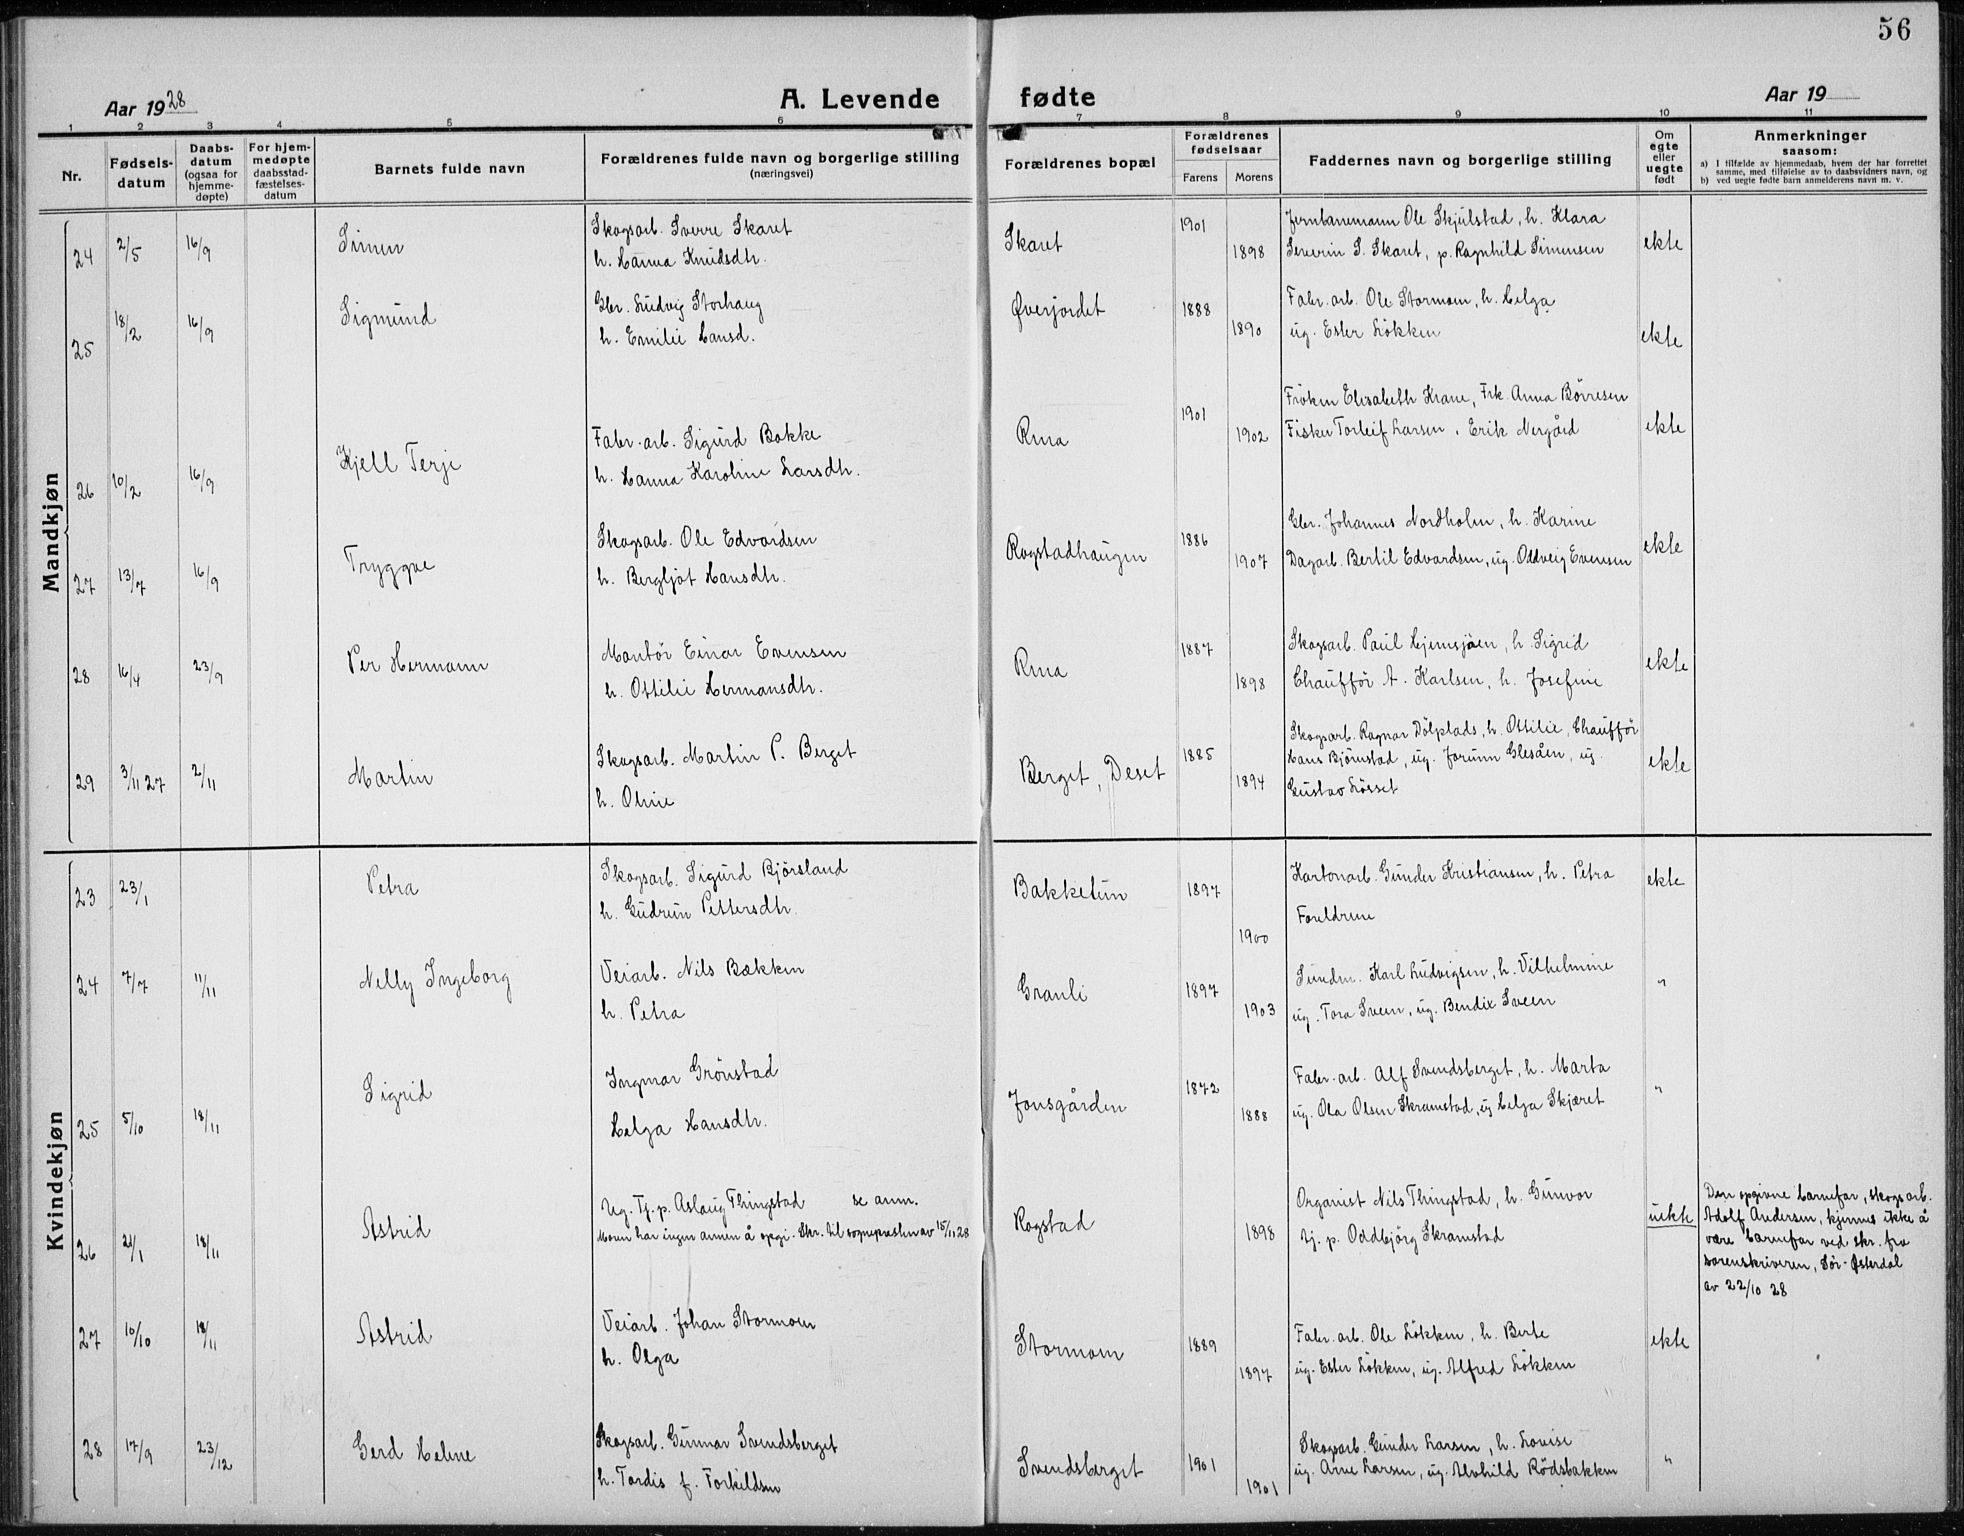 56
Aar 1928
A. Levende fødte
Aar 19
1 2 3 4 5 6 7 8 9 10 11
Nr.
Fødsels-
datum
Daabs-
datum
(ogsaa for
hjemme-
døpte)
For hjem-
medøpte
daabsstad-
fæstelses-
datum
Barnets fulde navn
Forældrenes fulde navn og borgerlige stilling
(næringsvei)
Forældrenes bopæl
Forældrenes
fødselsaar
Farens Morens
Faddernes navn og borgerlige stilling
Om
egte
eller
uegte
født
Anmerkninger
saasom:
a) I tilfælde av hjemmedaab, hvem der har forrettet
samme, med tilføielse av to daabsvidners navn, og
b) ved uegte fødte barn anmelderens navn m. v.
Mandkjøn
24 2/5 16/9 Simen
Skogsarb. Sverre Skaret
h. Hanna Knudsdtr.
Skaret 1901 1898
Jernbanemann Ole Skjulstad, h. Klara
Severin S. Skaret, p. Ragnhild Simensen
ekte
25 18/2 16/9 Sigmund
Gbr. Ludvig Storhaug
h. Emilie Hansd.
Øverjordet 1888 1890
Fabr. arb. Ole Stormoen, h. Helga
ug. Ester Løkken
ekte
26 10/2 16/9 Kjell Terje
Fabr. arb. Sigurd Bakke
h. Hanna Karoline Larsdtr.
Rena 1901 1902
Frøken Elisabeth Krane, Frk. Anna Børresen
Fisker Torleif Larsen, Erik Nergård
ekte
27 13/7 16/9 Tryggve
Skogsarb. Ole Edvardsen
h. Bergljot Hansdtr.
Rogstadhaugen 1886 1907
Gbr. Johannes Nordholen, h. Karine
Dagarb. Bertil Edvardsen, ug. Oddveig Evensen
ekte
28 16/4 23/9 Per Hermann
Montør Einar Evensen
h. Ottilie Hermansdtr.
Rena 1887 1898
Skogsarb. Paul Hjemsjøen, h. Sigrid
Chauffør A. Karlsen, h. Josefine
ekte
29 3/11 27 2/11 Martin
Skogsarb. Martin P. Berget
h. Oline
Berget, Deset 1885 1894
Skogsarb. Ragnar Dölplads, h. Ottilie, Chauffør
Hans Bjørnstad, ug. Jorunn Glesåen, ug.
Gustav Løsset
ekte
Kvindekjøn
23 23/1 Petra
Skogsarb. Sigurd Bjørsland
h. Gudrun Pettersdtr.
Bakketun 1897 1900
Kartonarb. Gunder Kristiansen, h. Petra
Foreldrene
ekte
24 7/7 11/11 Nelly Ingeborg
Veiarb. Nils Bækken
h. Petra
Granli 1897 1903
Karl Ludvigsen, h. Vilhelmine
ug. Tora Sveen, ug. Bendix Sveen
"
25 5/10 18/11 Sigrid
Ingmar Grönstad
Helga Hansdtr.
Jonsgården 1872 1888
Fabr. arb. Alf Svendsberget, h. Marta
ug. Ola Olsen Skramstad, ug Helga Skjæret
"
26 21/1 18/11 Astrid
Ug. Tj. p. Aslaug Thingstad se anm.
Moren har ingen annen å opgi. Skr. til sognepresten av 15/11 28
Rogstad 1898
Organist Nils Thingstad, h. Gunvor
tj. p. Oddbjörg Skramstad
uekte
Den opgivne barnefar, skogsarb.
Adolf Andersen, kjennes ikke å
være barnefar ved skr. fra
sorenskriveren, Sør-Østerdal
av 22/10 28
27 10/10 18/11 Astrid
Veiarb. Johan Stormoen
h. Olga
Stormoen 1889 1897
Fabr. arb. Ole Løkken, h. Berte
ug. Ester Løkken, ug. Alfred Løkken
ekte
28 17/9 23/12 Gerd Helene
Skogsarb. Gunnar Svendsberget
h. Tordis f. Torkildsen
Svendsberget 1901 1901
Skogsarb. Gunder Larsen, h. Lovise
ug. Arne Larsen, ug. Alvhild Rödsbakken
"